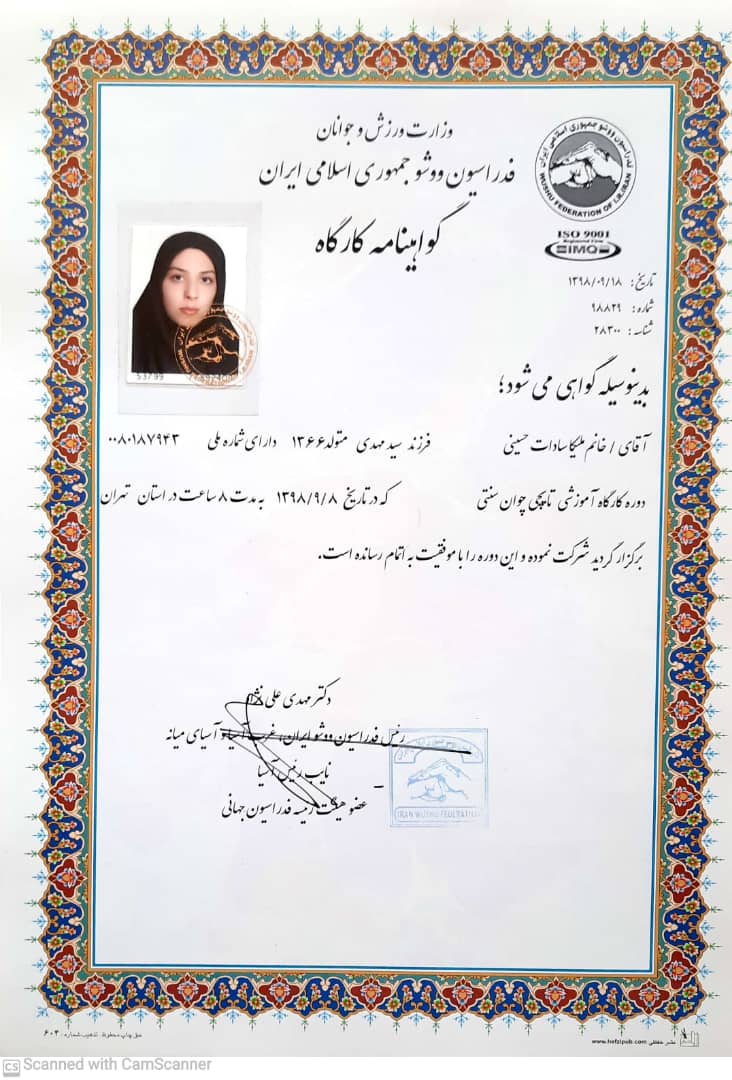 وزارت ورزش و جوانان
فدراسیون ووشو جمهوری اسلامی ایران
گواهینامه کارگاه
فدراسیون ووشو جمهوری اسلامی ایران
WUSHU FEDERATION OF I.R.IRAN
ISO 9001
Registered Firm
IMQ
تاریخ: ۱۳۹۸/۰۹/۱۸
شماره: ۹۸۸۲۹
شناسه: ۲۸۳۰۰
بدینوسیله گواهی می شود؛
آقای / خانم ملیکا سادات حسینی فرزند سید مهدی متولد ۱۳۶۶ دارای شماره ملی ۰۰۸۰۱۸۷۹۴۳
دوره کارگاه آموزشی تایچی چوان سنتی که در تاریخ ۱۳۹۸/۹/۸ به مدت ۸ ساعت در استان تهران
برگزار گردید شرکت نموده و این دوره را با موفقیت به اتمام رسانده است.
دکتر مهدی علی نژاد
رئیس فدراسیون ووشو ایران، غرب آسیا و آسیای میانه
نایب رئیس آسیا
عضو هیئت رئیسه فدراسیون جهانی
IRAN WUSHU FEDERATION
حق چاپ محفوظ. تذهیب شماره: ۶۰۴
نشر حفظی www.hefzipub.com
CS Scanned with CamScanner